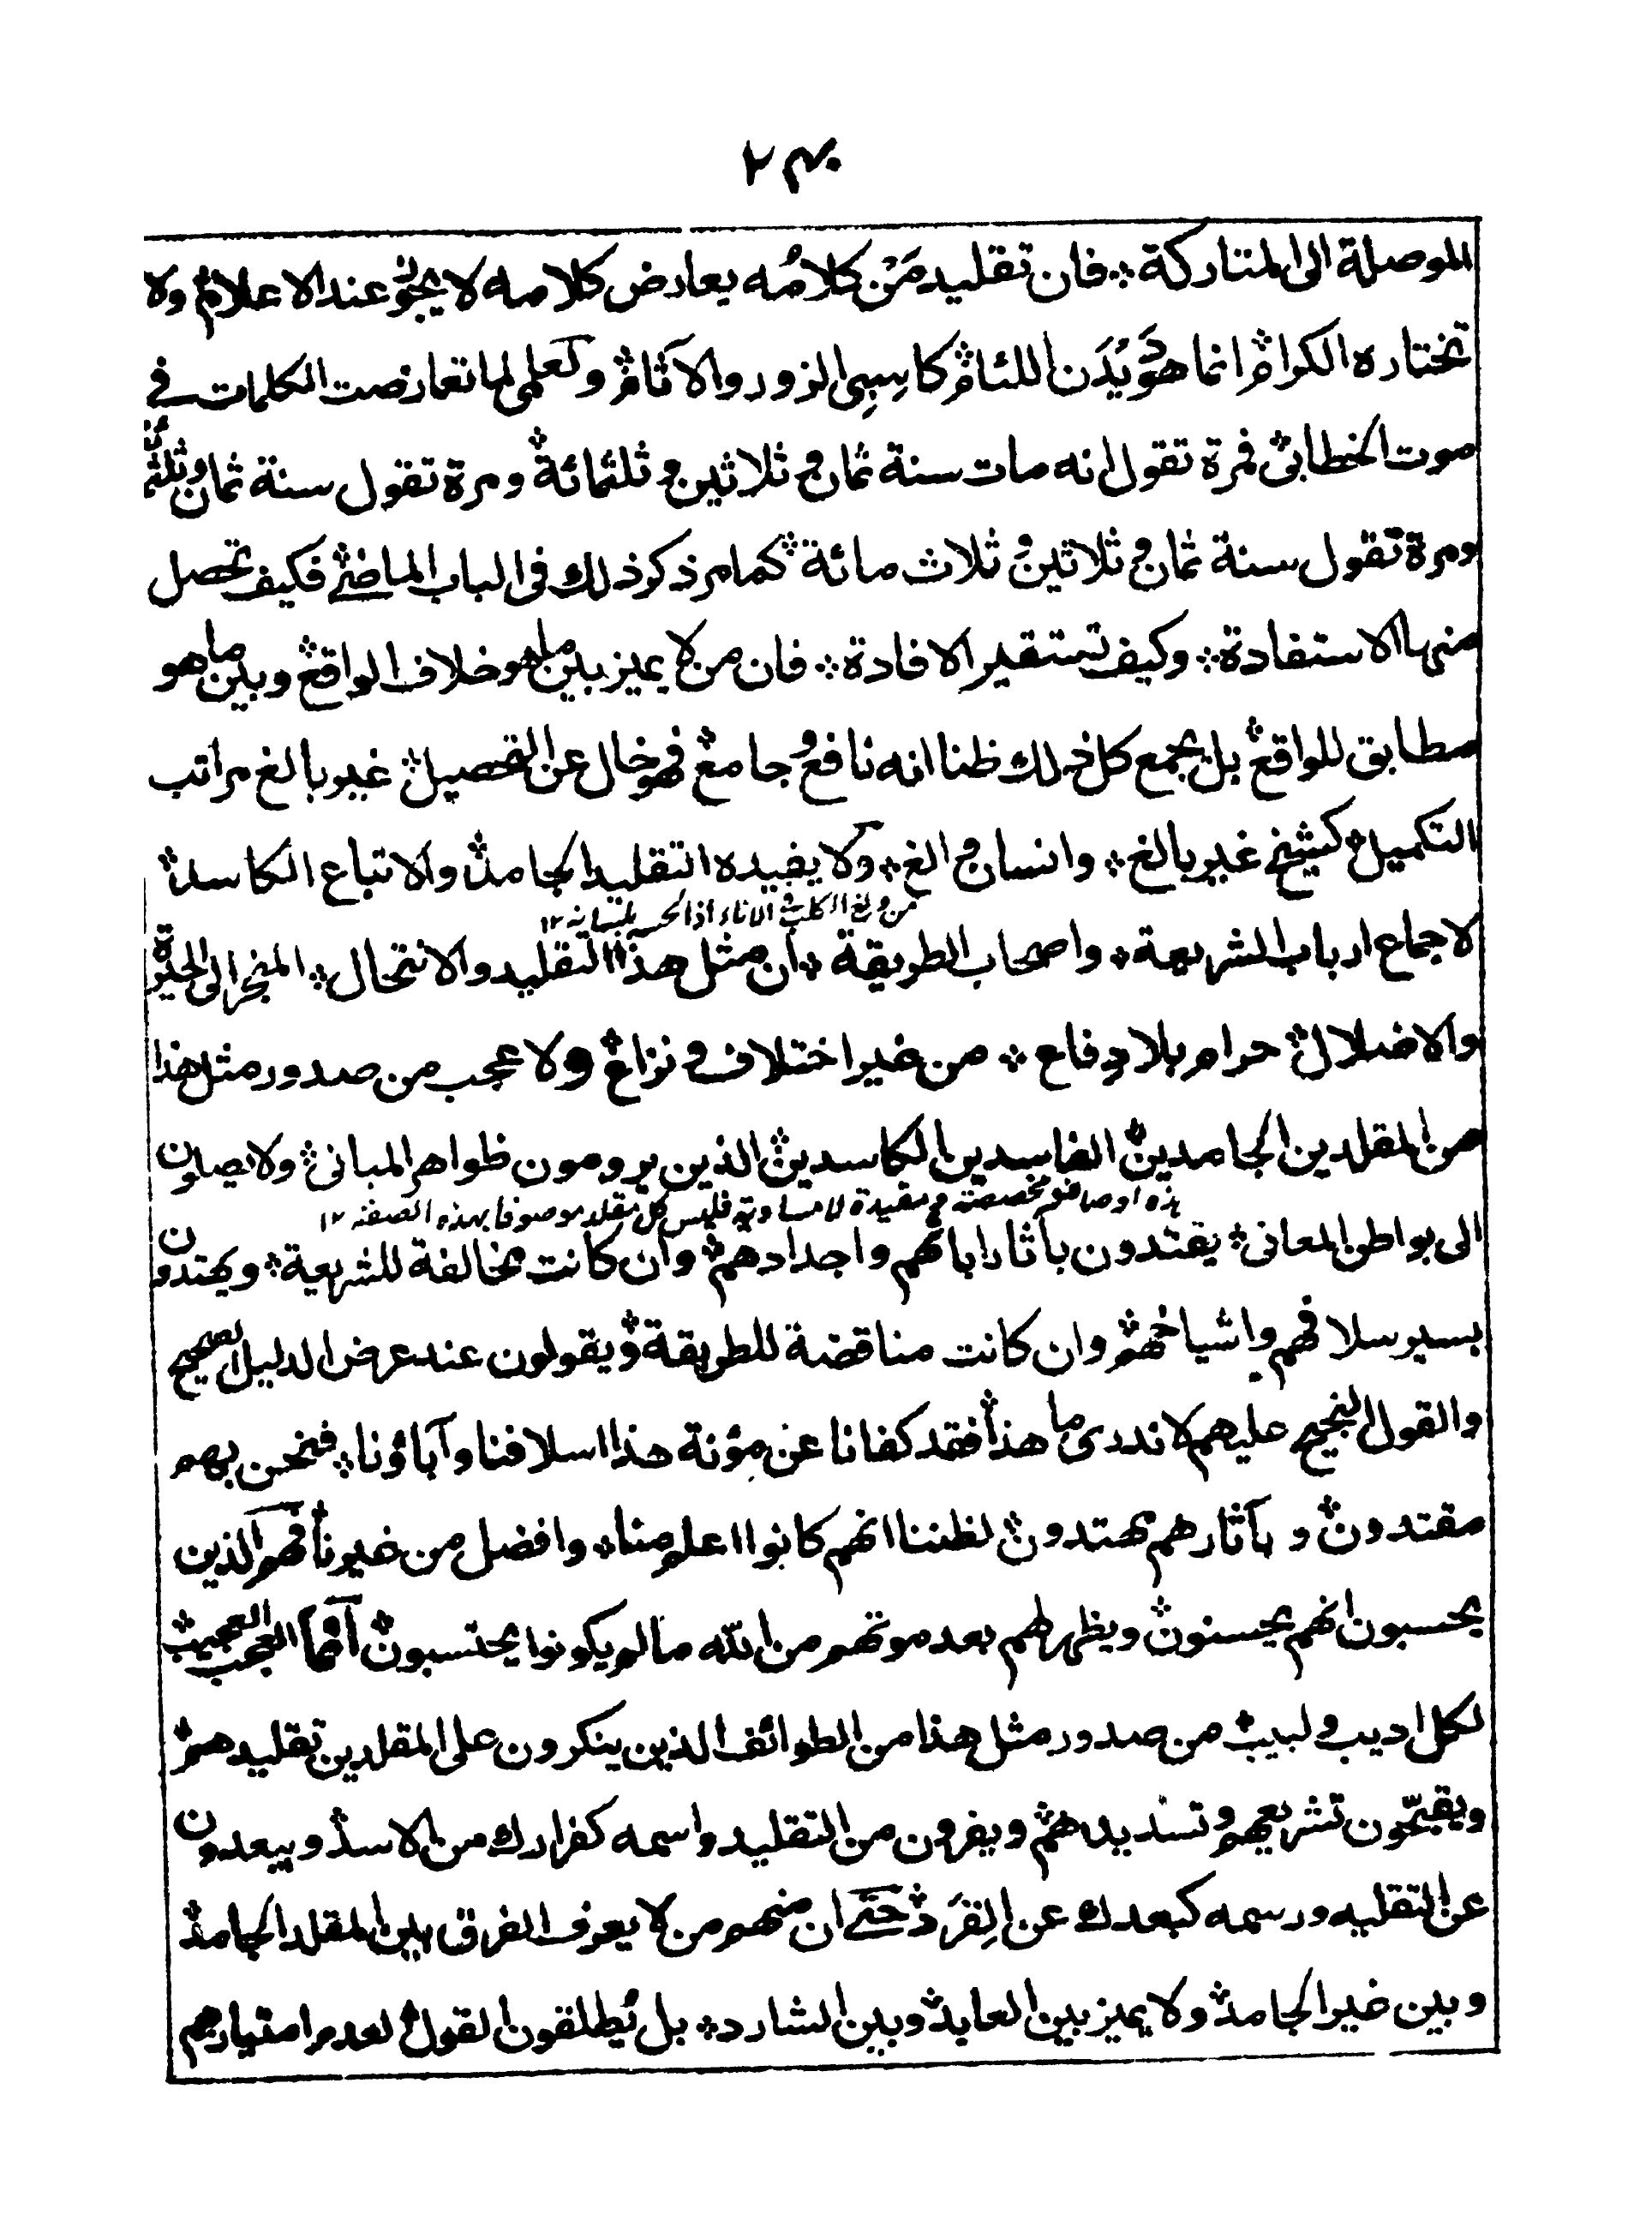 ٢٤٠
الموصلة الى المتاركة ؞ فان تقليد مَنْ كلامُه يعارض كلامه لا يجوّز عند الاعلام ؞ ولا
تختاره الكرام ؞ انما هو دَيْدَن اللئام ؞ كاسبى الزور والآثام ؞ ولعلمى لما تعارضت الكلمات في
موت الخطابى ؞ فمرة تقول انه مات سنة ثمان و ثلاثين و ثلثمائة ؞ ومرة تقول سنة ثمان و
ومرة تقول سنة ثمان و ثلاثين و ثلاث مائة ؞ كما مر ذكر ذلك فى الباب الماضى ؞ فكيف تحصل
منها الاستفادة ؞ وكيف تستقير الافادة ؞ فان من لا يميز بين ما هو خلاف الواقع ؞ وبين ما هو
مطابق للواقع ؞ بل يجمع كل ذلك ظنا انه نافع و جامع ؞ فهو خال عن التحصيل ؞ غير بالغ مراتب
التكميل ؞ كشيخ غير بالغ ؞ وانسان والغ ؞ ولا يفيده التقليد الجامد ؞ والاتباع الكاسد ؞
من ولغ الكلب فى الاناء اذا لحسه بلسانه ١٢
لاجماع ارباب الشريعة ؞ واصحاب الطريقة ؞ ان مثل هذا التقليد والانتحال ؞ المنجر الى الحيرة
والاضلال ؞ حرام بلا دفاع ؞ من غير اختلاف و نزاع ؞ ولا عجب من صدور مثل هذا
من المقلدين الجامدين ؞ الفاسدين الكاسدين ؞ الذين يرومون ظواهر المبانى ؞ ولا يصلون
هذه اوصاف مخصصة و مقيدة لا مساوية فليس كل مقلد موصوفا بهذه الصفة ١٢
الى بواطن المعانى ؞ يقتدون بآثار ابائهم واجدادهم ؞ وان كانت مخالفة للشريعة ؞ ويهتدون
بسير سلافهم واشياخهم ؞ وان كانت مناقضة للطريقة ؞ ويقولون عند عرض الدليل الصحيح
والقول النجيح عليهم لا ندرى ما هذا ؞ فقد كفانا عن مؤنة هذا اسلافنا وآباؤنا ؞ فنحن بهم
مقتدون ؞ و بآثارهم مهتدون ؞ لظننا انهم كانوا اعلم منا ؞ وافضل من غيرنا ؞ فهم الذين
يحسبون انهم يحسنون ؞ ويظهر لهم بعد موتهم من الله ما لم يكونوا يحتسبون ؞ انما العجب العجيب ؞
لكل اديب و لبيب ؞ من صدور مثل هذا من الطوائف الذين ينكرون على المقلدين تقليدهم ؞
ويقبّحون تشريعهم و تسديدهم ؞ ويفرون من التقليد واسمه كفرارك من الاسد ؞ ويبعدون
عن التقليه ورسمه كبعدك عن القِرَد ؞ حتى ان منهم من لا يعرف الفرق بين المقلد الجامد ؞
وبين غير الجامد ؞ ولا يميز بين العابد ؞ وبين الشارد ؞ بل يُطلقون القول ؞ لعدم امتيازهم